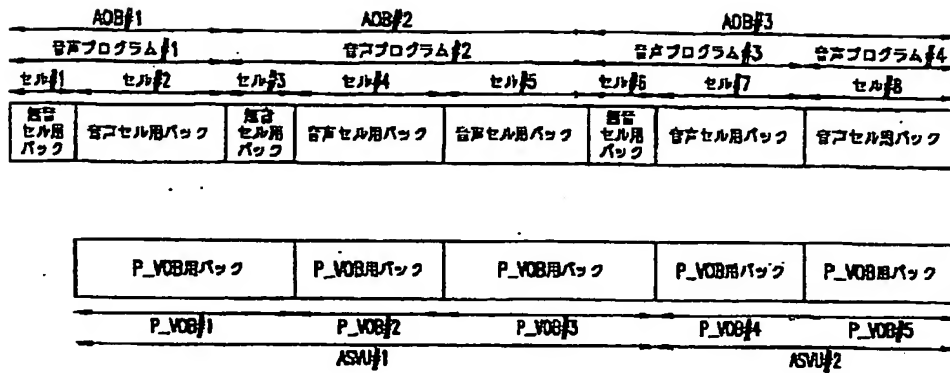 AOB#1 AOB#2 AOB#3
音声プログラム#1 音声プログラム#2 音声プログラム#3 音声プログラム#4
セル#1 セル#2 セル#3 セル#4 セル#5 セル#6 セル#7 セル#8
無音セル用パック 音声セル用パック 無音セル用パック 音声セル用パック 音声セル用パック 無音セル用パック 音声セル用パック 音声セル用パック
P_VOB用パック P_VOB用パック P_VOB用パック P_VOB用パック P_VOB用パック
P_VOB#1 P_VOB#2 P_VOB#3 P_VOB#4 P_VOB#5
ASVU#1 ASVU#2